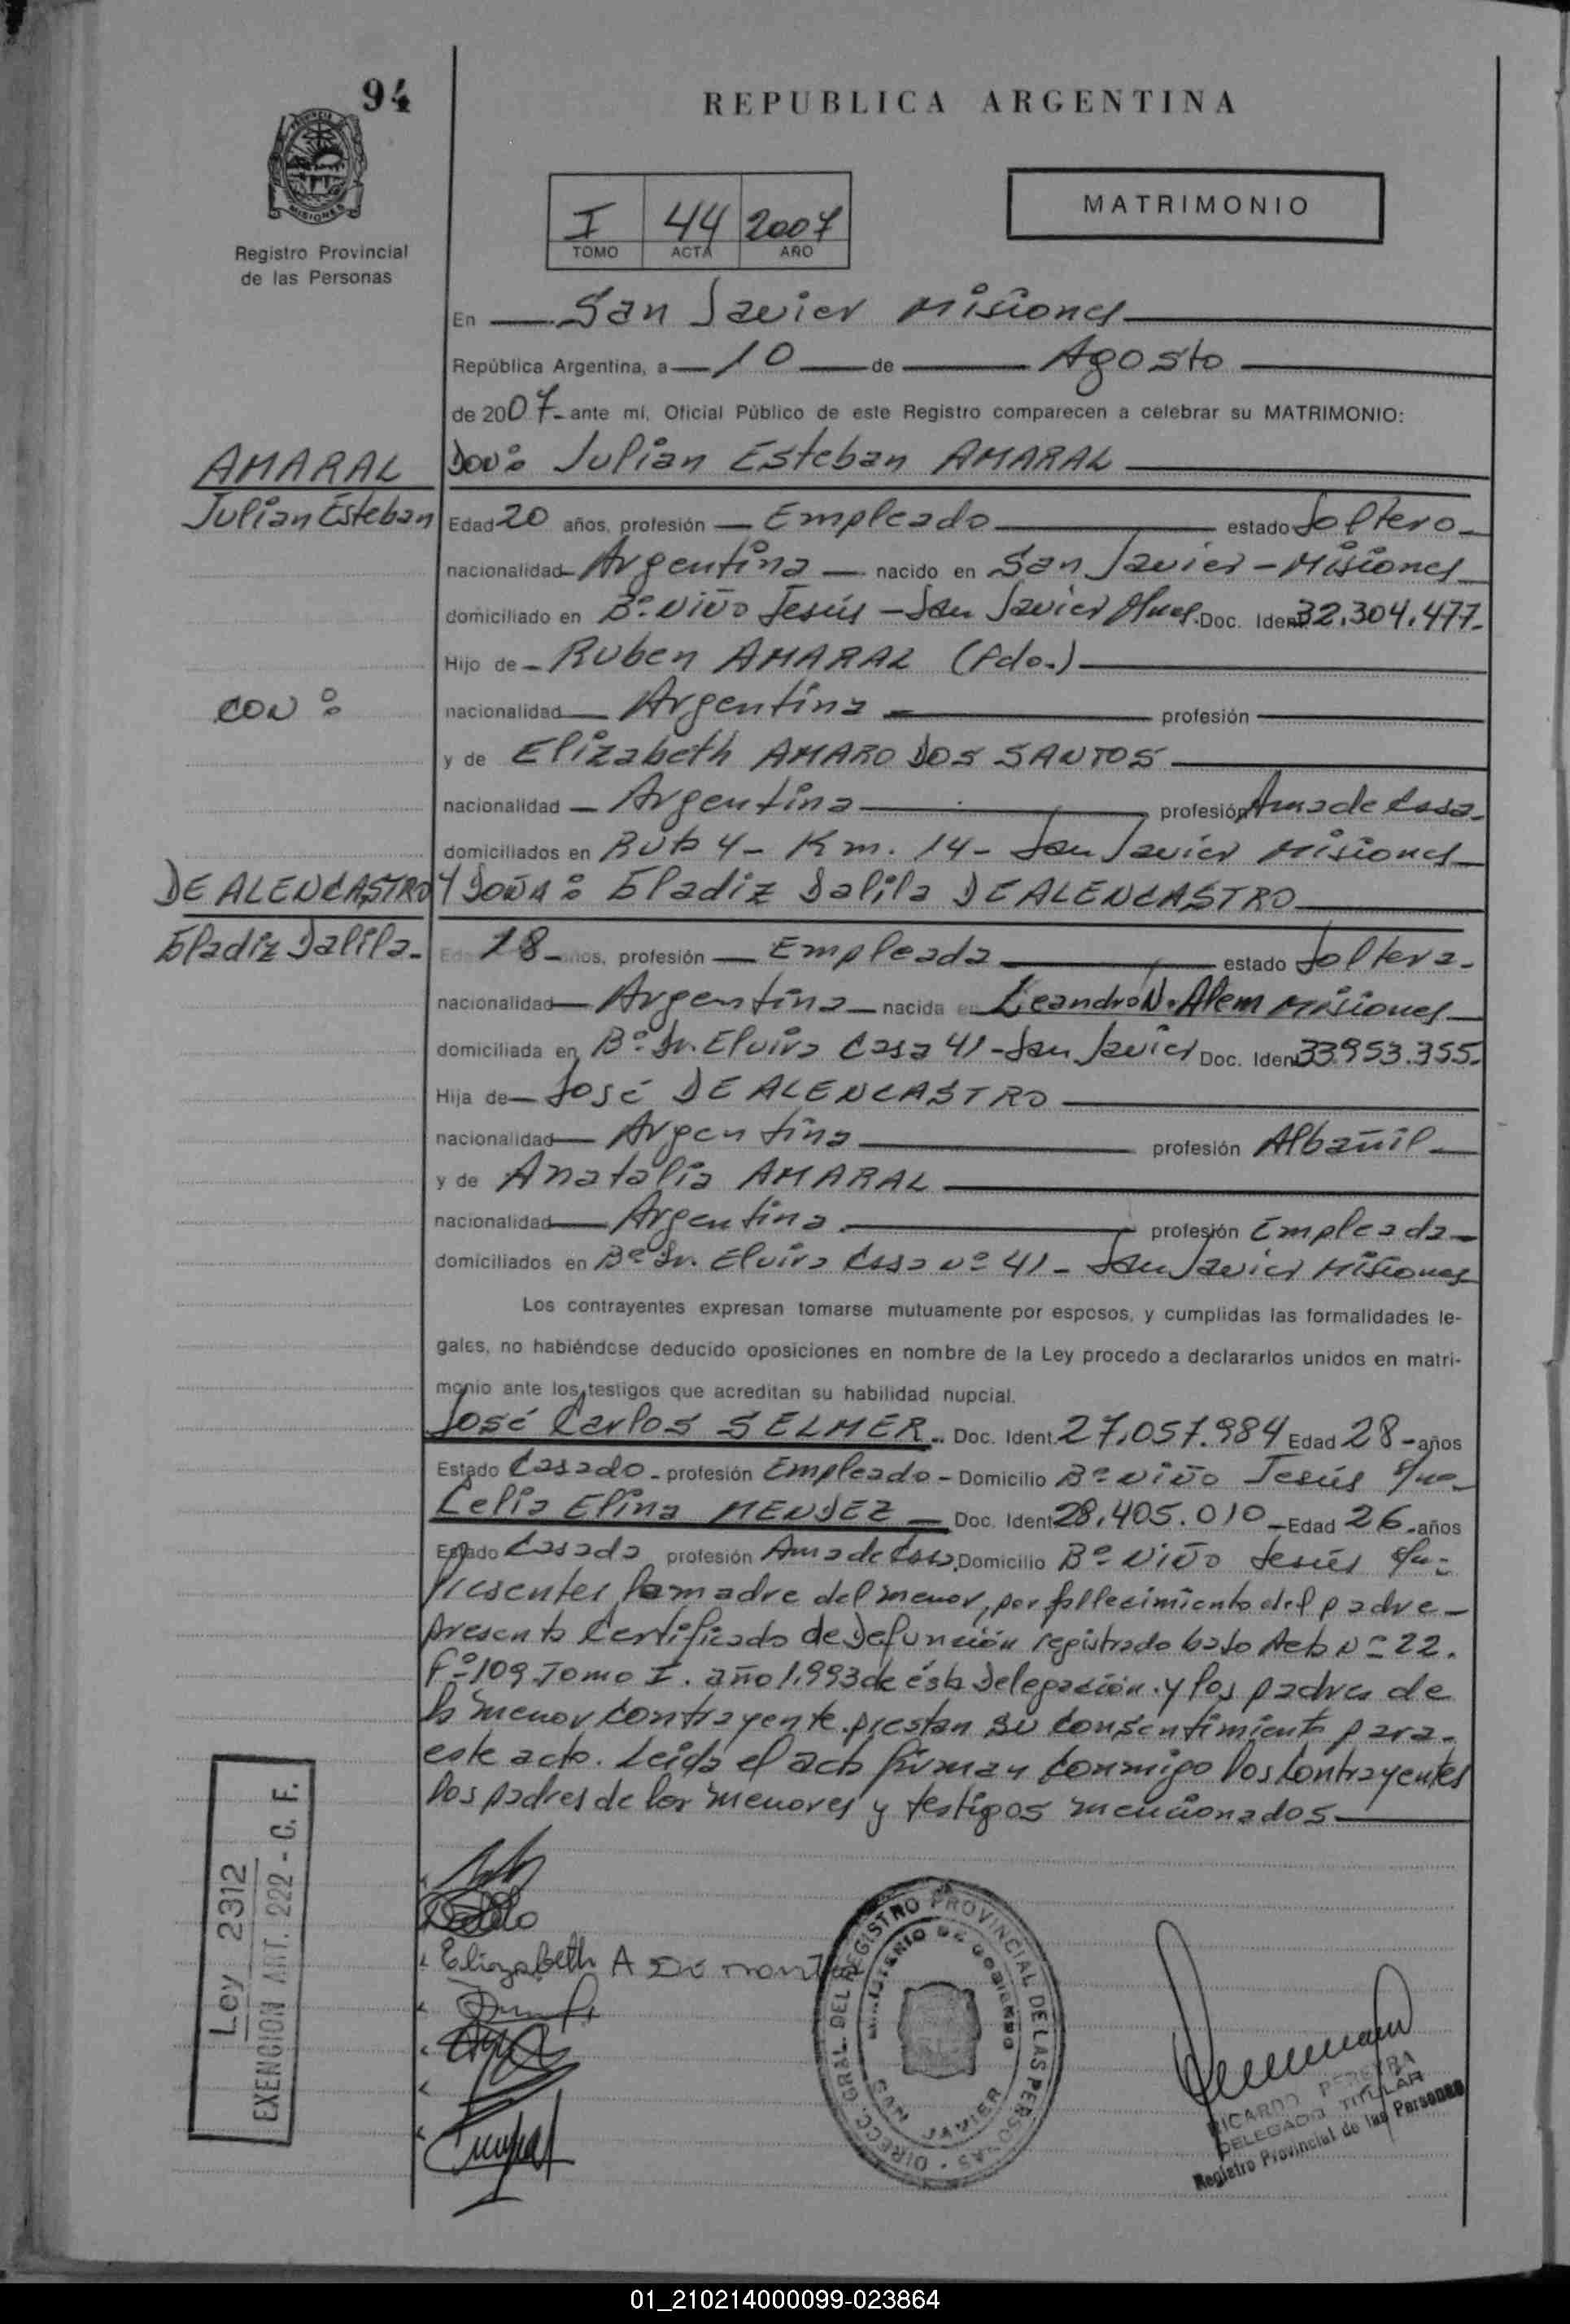 94
REPUBLICA ARGENTINA
MISIONES
Registro Provincial
de las Personas
I 44 2007
TOMO ACTA AÑO
MATRIMONIO
En San Javier Misiones
República Argentina, a 10 de Agosto
de 2007 - ante mí, Oficial Público de este Registro comparecen a celebrar su MATRIMONIO:
AMARAL
Julian Esteban
DON: Julian Esteban AMARAL
Edad 20 años, profesión Empleado estado Soltero
nacionalidad Argentina nacido en San Javier - Misiones
domiciliado en Bº Niño Jesús - San Javier Mnes. Doc. Ident. 32.304.477.
Hijo de Ruben AMARAL (Fdo.)
CON:
nacionalidad Argentina profesión
y de Elizabeth AMARO DOS SANTOS
nacionalidad Argentina profesión Ama de Casa.
domiciliados en Ruta 4 - Km. 14 - San Javier Misiones
DE ALENCASTRO
Eladiz Dalila.
Y DOÑA: Eladiz Dalila DE ALENCASTRO
Edad 18 - años, profesión Empleada estado Soltera.
nacionalidad Argentina nacida en Leandro N. Alem Misiones
domiciliada en Bº Sr. Elvira Casa 41 - San Javier Doc. Ident. 33.953.355.
Hija de José DE ALENCASTRO
nacionalidad Argentina profesión Albañil
y de Anatalia AMARAL
nacionalidad Argentina profesión Empleada
domiciliados en Bº Sr. Elvira Casa nº 41 - San Javier Misiones
Los contrayentes expresan tomarse mutuamente por esposos, y cumplidas las formalidades le-
gales, no habiéndose deducido oposiciones en nombre de la Ley procedo a declararlos unidos en matri-
monio ante los testigos que acreditan su habilidad nupcial.
José Carlos SELMER. Doc. Ident. 27.057.984 Edad 28 - años
Estado Casado - profesión Empleado - Domicilio Bº Niño Jesús
Celia Elina MENDEZ Doc. Ident. 28.405.010 - Edad 26 - años
Estado Casada profesión Ama de Casa. Domicilio Bº Niño Jesús
Presentes la madre del menor, por fallecimiento del padre -
presenta Certificado de Defunción registrado bajo Acta Nº 22.
Fº 109 Tomo I. año 1.993 de ésta Delegación. y los padres de
la menor contrayente. prestan su consentimiento para.
este acto. Leida el acta firman conmigo los Contrayentes
los padres de los menores y testigos mencionados
Ley 2312
EXENCION ART. 222 - C. F.
Elizabeth A
DIRECC. GRAL. DEL REGISTRO PROVINCIAL DE LAS PERSONAS
MINISTERIO DE GOBIERNO
SAN JAVIER
RICARDO PEREYRA
DELEGADO TITULAR
Registro Provincial de las Personas
01_210214000099-023864